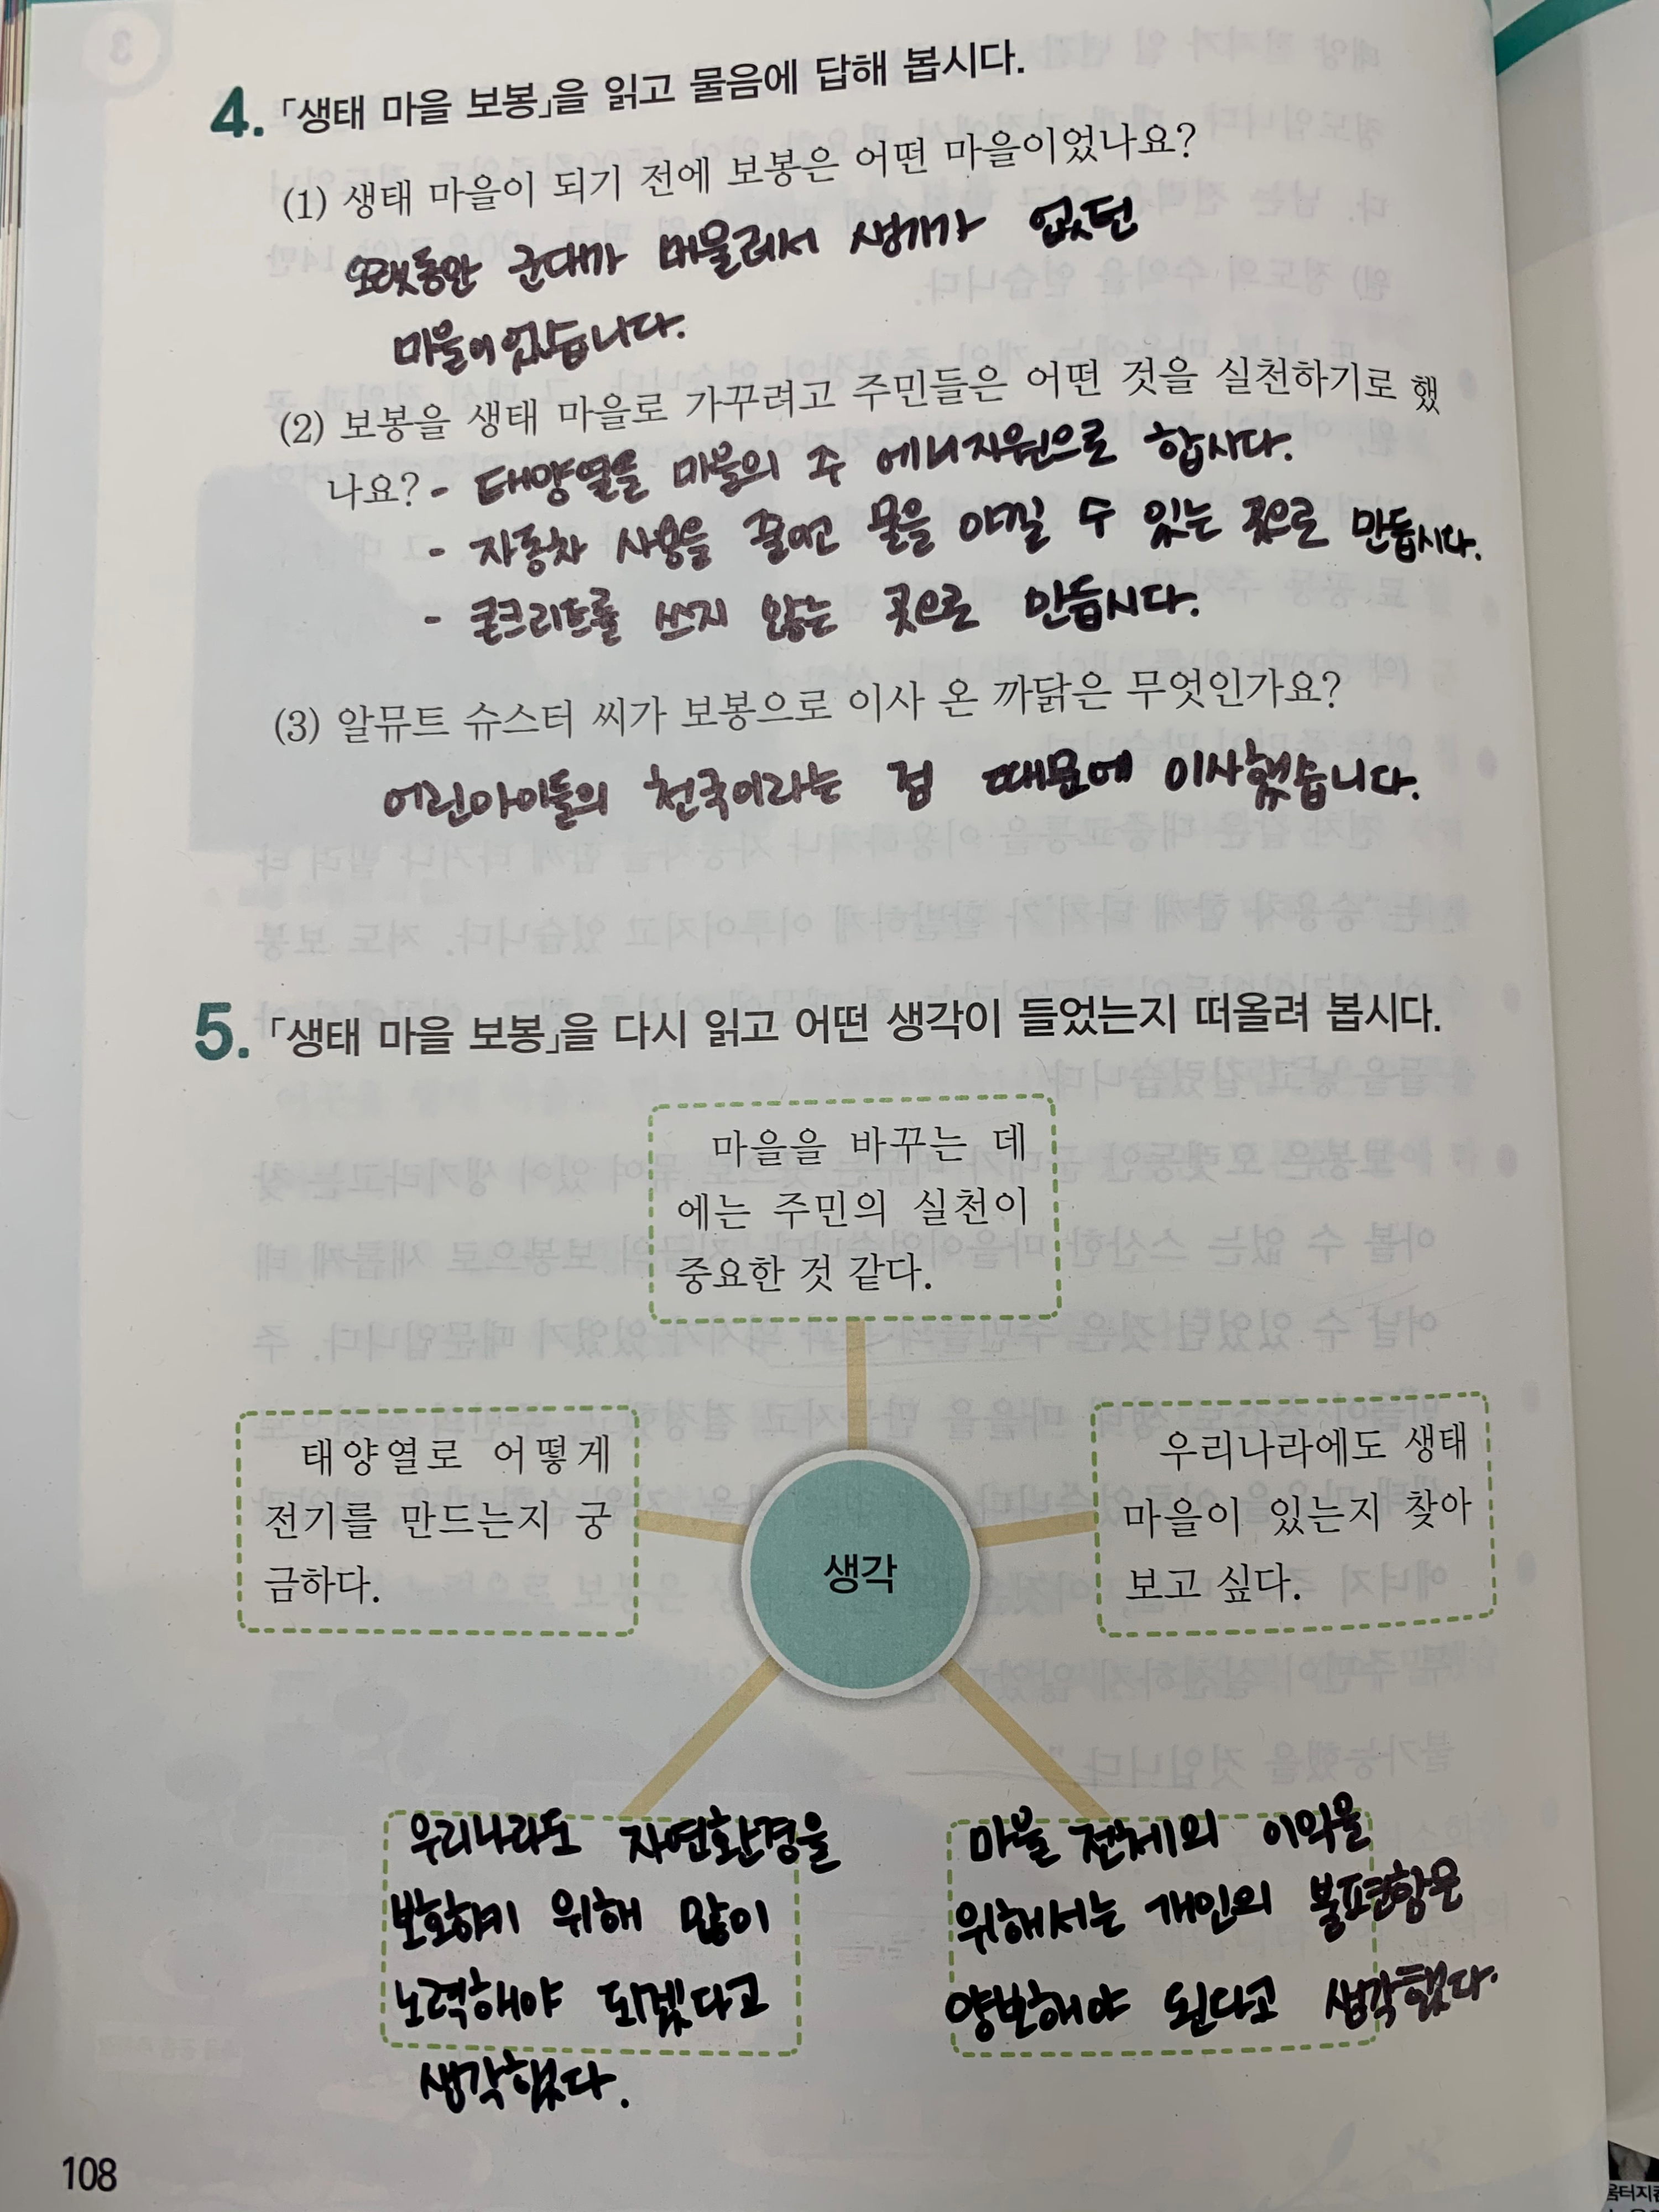 4. 「생태 마을 보봉」을 읽고 물음에 답해 봅시다.
(1) 생태 마을이 되기 전에 보봉은 어떤 마을이었나요?
오랫동안 군대가 머물러서 생기가 없던
마을이었습니다.
(2) 보봉을 생태 마을로 가꾸려고 주민들은 어떤 것을 실천하기로 했
나요? - 태양열을 마을의 주 에너지원으로 합시다.
- 자동차 사용을 줄이고 물을 아낄 수 있는 곳으로 만듭시다.
- 콘크리트를 쓰지 않는 곳으로 만듭시다.
(3) 알뮤트 슈스터 씨가 보봉으로 이사 온 까닭은 무엇인가요?
어린아이들의 천국이라는 점 때문에 이사했습니다.
5. 「생태 마을 보봉」을 다시 읽고 어떤 생각이 들었는지 떠올려 봅시다.
마을을 바꾸는 데
에는 주민의 실천이
중요한 것 같다.
태양열로 어떻게
전기를 만드는지 궁
금하다.
우리나라에도 생태
마을이 있는지 찾아
보고 싶다.
생각
우리나라도 자연환경을
보호하기 위해 많이
노력해야 되겠다고
생각했다.
마을 전체의 이익을
위해서는 개인의 불편함은
양보해야 된다고 생각했다.
108